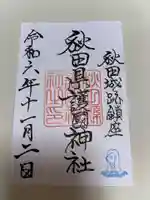 秋田城跡鎮座
秋田県護國神社
令和六年十一月二日